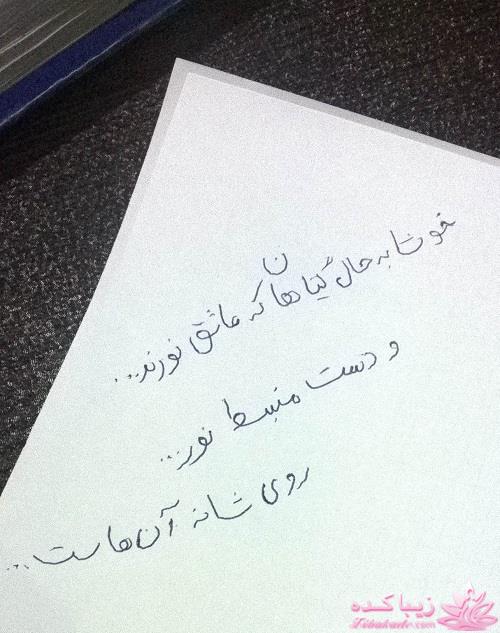 خوشا به حال گیاهان که عاشق نورند...
و دست منبسط نور...
روی شانه آن‌هاست...
زیباکده
Zibakade.com